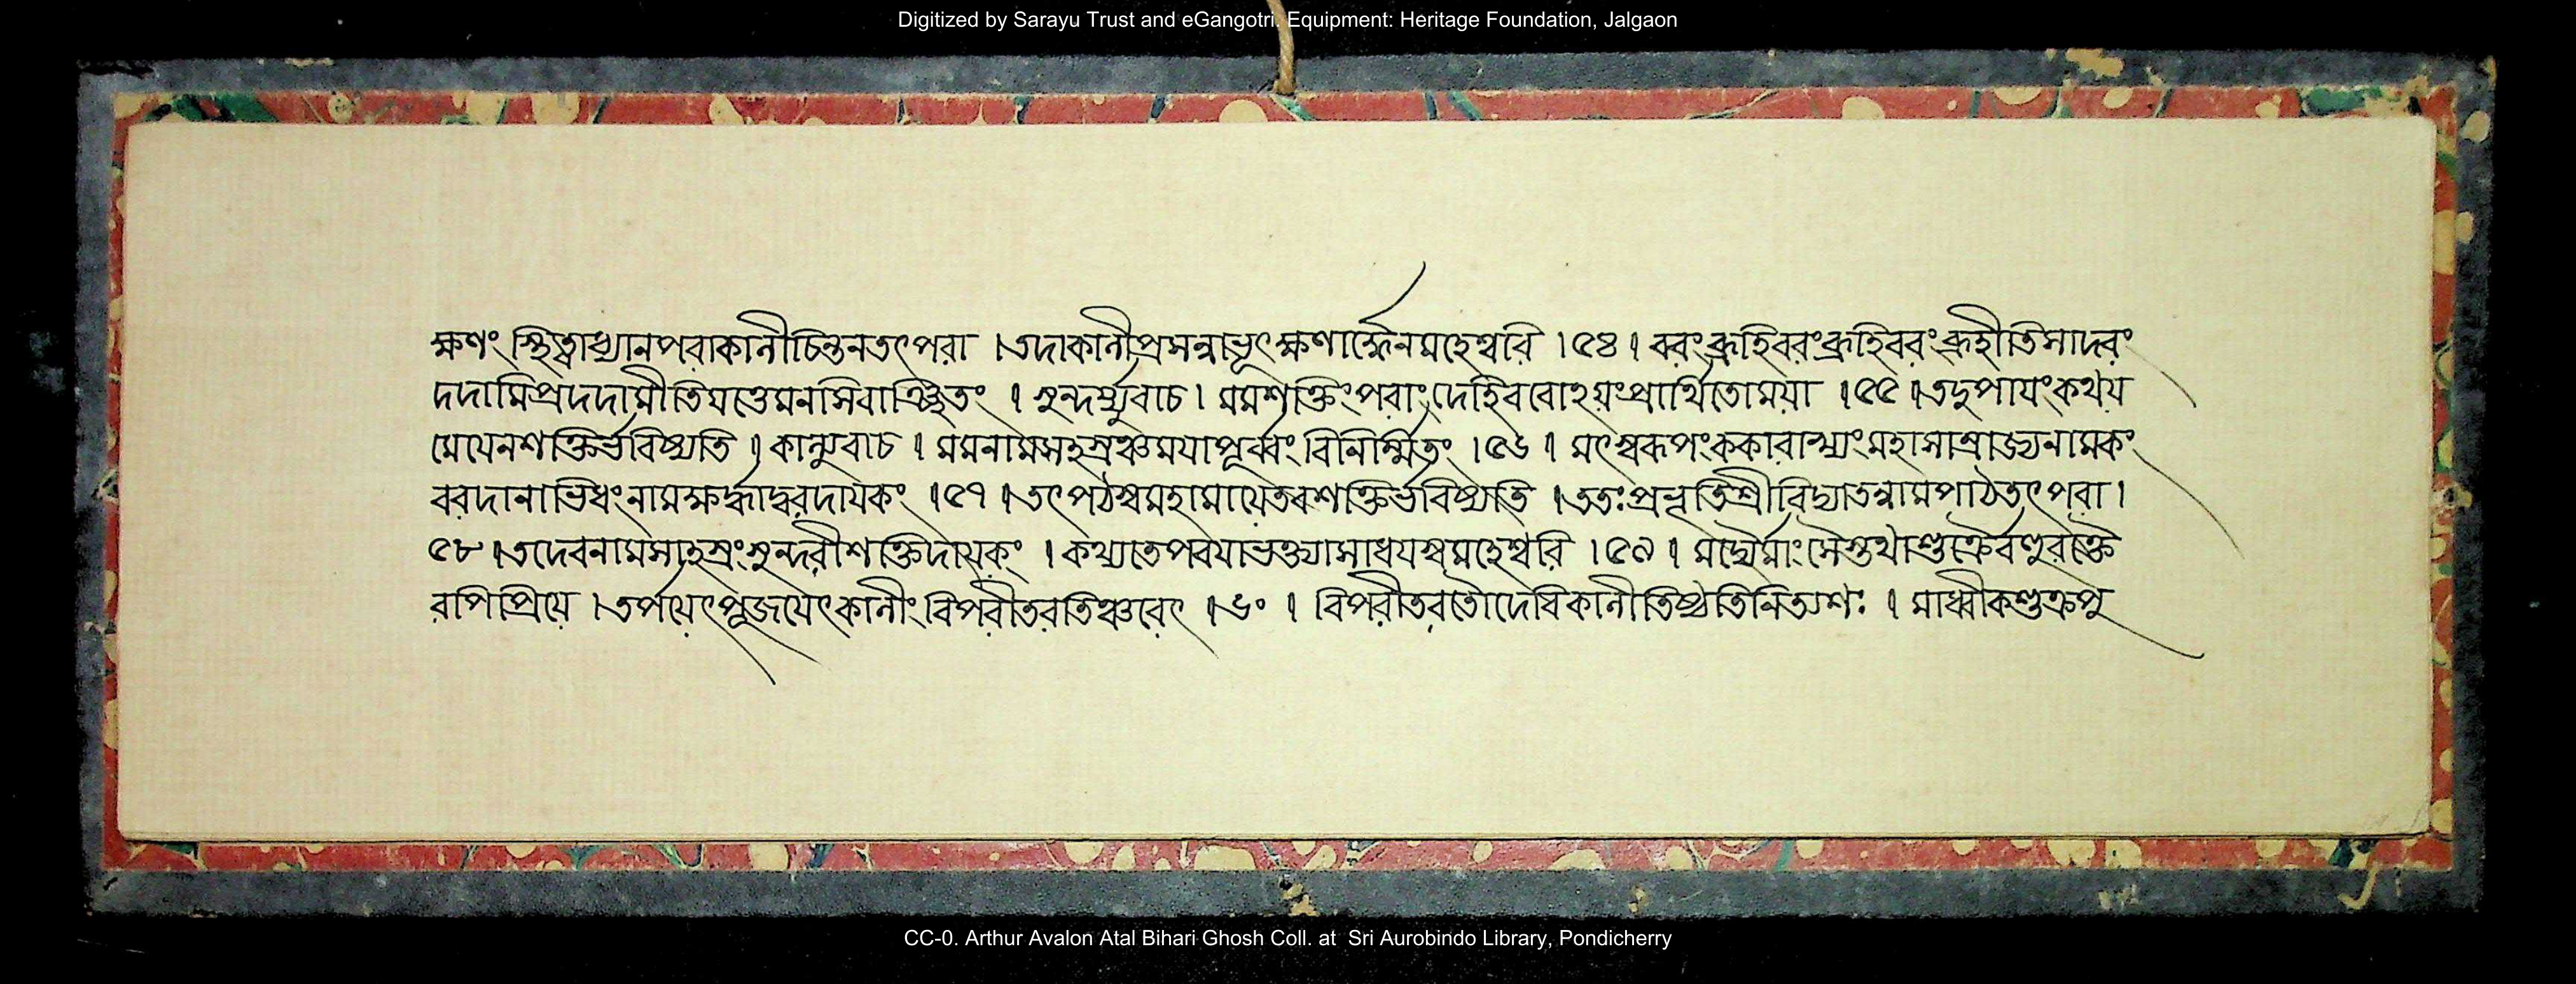 Digitized by Sarayu Trust and eGangotri. Equipment: Heritage Foundation, Jalgaon
ক্ষণং স্থিত্বাধ্যানপরাকালীচিন্তনতৎপরা । তদাকালীপ্রসন্নাভূৎক্ষণার্দ্ধেনমহেশ্বরি । ৫৪ । বরংব্রূহিবরংব্রূহিবরংব্রূহীতিসাদরং
দদামিপ্রদদামীতিযত্তেমনসিবাঞ্ছিতং । সুন্দর্য্যুবাচ । মমশক্তিংপরাংদেহিবরোঽয়ংপ্রার্থিতোময়া । ৫৫ । তদুপায়ংকথয়
মেযেনশক্তির্ভবিষ্যতি । কাল্যুবাচ । মমনামসহস্রঞ্চময়াপূর্ব্বংবিনির্ম্মিতং । ৫৬ । মৎস্বরূপংককারাখ্যংমহাসাম্রাজ্যনামকং
বরদানাভিধংনামক্ষর্দ্ধাদ্বরদায়কং । ৫৭ । তৎপঠস্বমহামায়েতবশক্তির্ভবিষ্যতি । ততঃপ্রভৃতিশ্রীবিদ্যাতন্নামপাঠতৎপরা ।
৫৮ । তদেবনামসাহস্রংসুন্দরীশক্তিদায়কং । কথ্যতেপরয়াভক্ত্যাসাধয়স্বমহেশ্বরি । ৫৯ । মদ্যৈর্মাংসৈস্তথাশুক্রৈর্বণুরক্তৈ
রপিপ্রিয়ে । তর্পয়েৎপূজয়েৎকালীংবিপরীতরতিঞ্চরেৎ । ৬০ । বিপরীতরতৌদেবিকালীতিষ্ঠতিনিত্যশঃ । মাধ্বীকশুক্রপু
CC-0. Arthur Avalon Atal Bihari Ghosh Coll. at Sri Aurobindo Library, Pondicherry